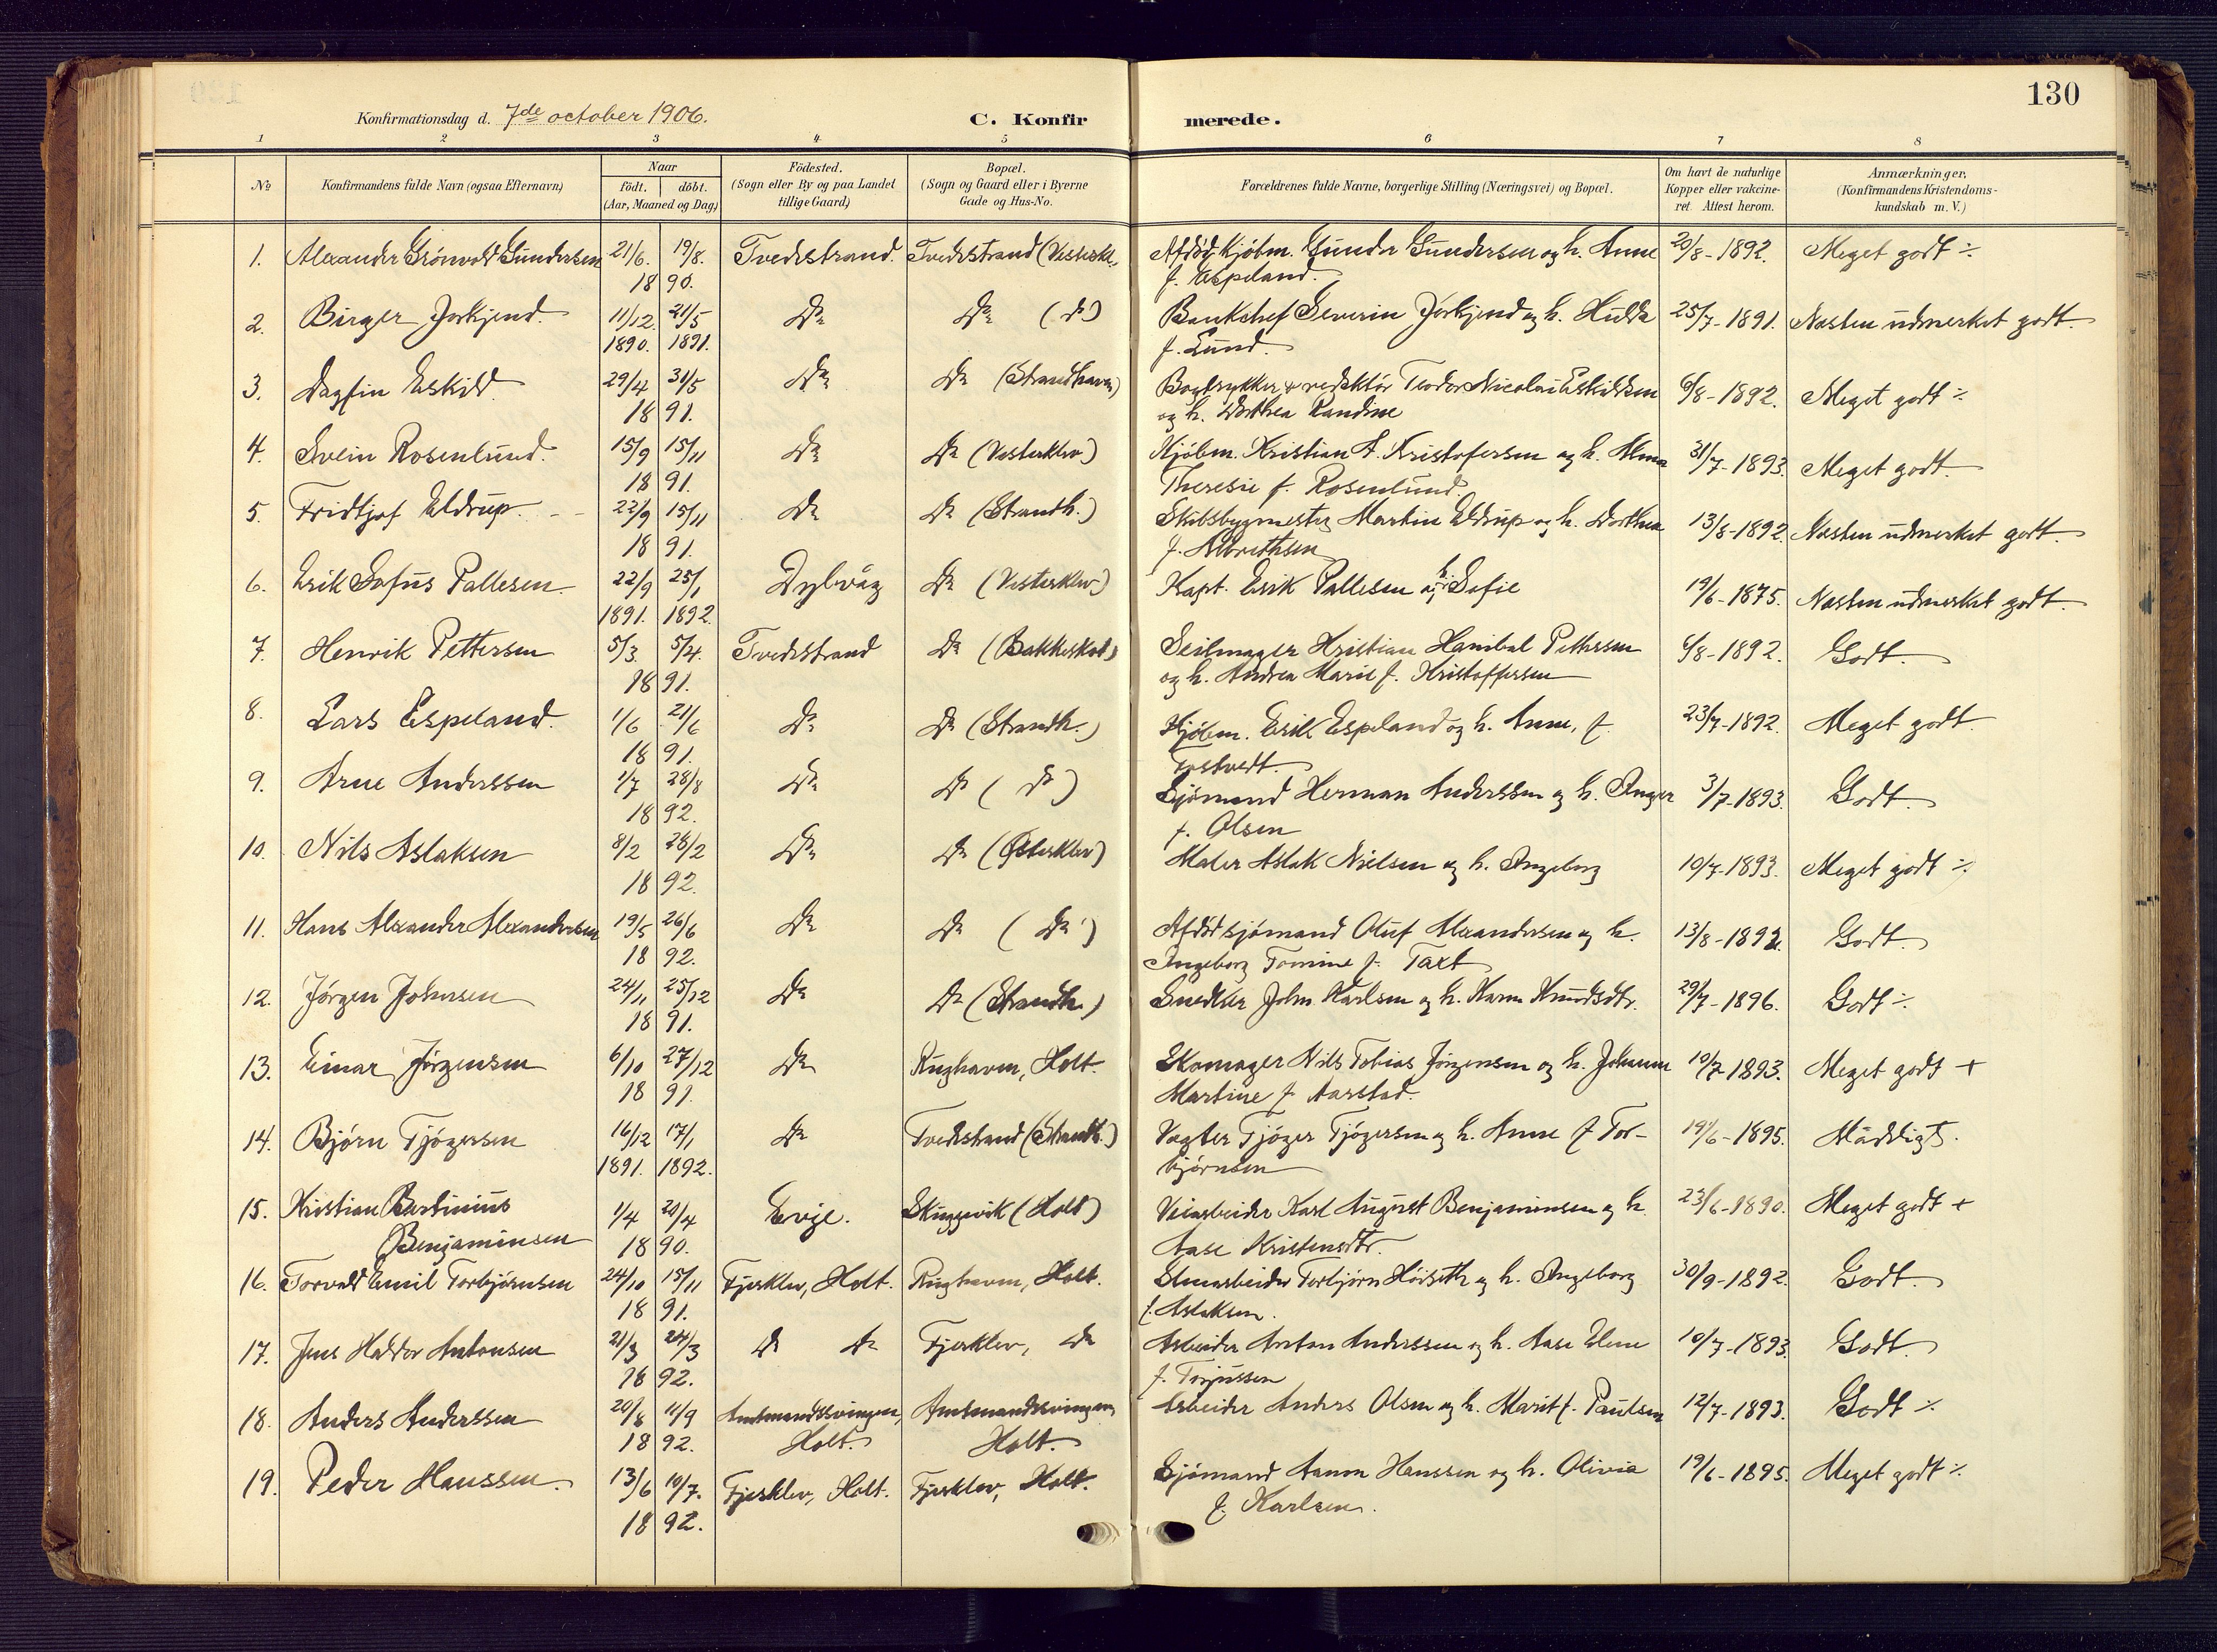 130
Konfirmationsdag d. 7de october 1906. C. Konfirmerede.
1 2 3 4 5 6 7 8
No Konfirmandens fulde Navn (ogsaa Efternavn) Naar födt. döbt. (Aar, Maaned og Dag) Födested. (Sogn eller By og paa Landet tillige Gaard) Bopæl. (Sogn og Gaard eller i Byerne Gade og Hus-No. Forældrenes fulde Navne, borgerlige Stilling (Næringsvei) og Bopæl. Om havt de naturlige Kopper eller vakcineret. Attest herom. Anmærkninger. (Konfirmandens Kristendomskundskab m. V.)
1. Alexander Grönvold Gundersen 21/6. 19/8. Tvedestrand. Tvedestrand (Vesterkl. Afdöd kjöbm. Gunder Gundersen og h. Anne 20/8-1892. Meget godt ÷
1890. f. Espeland.
2. Birger Jorkjend. 11/12. 21/5 Do Do (do) Bankchef Severin Jorkjend og h. Hulda 25/7-1891. Næsten udmerket godt.
1890. 1891. f. Lund.
3. Dagfin Eskild 29/4 31/5 Do Do (Strandhaven) Bogtrykker & redaktör Teodor Nicolai Eskildsen 6/8-1892. Meget godt ÷
1891. og h. Dorthea Randine
4. Svein Rosenlund. 15/9 15/11 Do Do (Vesterklev) Kjöbm. Kristian A. Kristofersen og h. Alma 31/7-1893. Meget godt.
1891. Theresie f. Rosenlund.
5. Fridtjof Eldrup. 22/9 15/11 Do Do (Strandh.) Skibsbygmester Martin Eldrup og h. Dorthea 13/8-1892. Næsten udmerket godt.
1891. f. Albrethsen
6. Erik Sofus Pallesen 22/9 25/1 Dybvåg Do (Vesterklev) Kapt. Erik Pallesen og h. Sofie 19/6-1875. Næsten udmerket godt.
1891. 1892.
7. Henrik Pettersen 5/3. 5/4. Tvedestrand Do (Bakkeskot) Seilmager Kristian Hanibal Pettersen 6/8-1892. Godt.
1891. og h. Andrea Marie f. Kristoffersen
8. Lars Espeland. 1/6 21/6 Do Do (Strandh.) Kjöbm. Erik Espeland og h. Anne, f. 23/7-1892. Meget godt.
1891. Tostvedt.
9. Arne Anderssen 1/7 28/8 Do Do (do) Sjömand Herman Anderssen og h. Inger 3/7-1893. Godt.
1892. f. Olsen
10. Nils Aslaksen 8/2 28/2 Do Do (Österklev) Maler Aslak Nielsen og h. Ingeborg 10/7-1893. Meget godt ÷
1892.
11. Hans Alexander Alexandersen 19/5 26/6 Do Do (Do) Afdöd sjömand Oluf Alexandersen og h. 13/8-1892. Godt.
1892. Ingeborg Tomine f. Taxt
12. Jörgen Johnsen 24/11 25/12 Do Do (Strandh.) Snedker John Karlsen og h. Karen Knudsdtr. 29/7-1896. Godt ÷
1891.
13. Einar Jörgensen 6/10 27/12 Do Rughaven, Holt. Skomager Nils Tobias Jörgensen og h. Johanne 10/7 1893. Meget godt +
1891. Martine f. Aarstad.
14. Björn Tjögersen 16/12 17/1 Do Tvedestrand (Strandh.) Vægter Tjöger Tjögersen og h. Anne f. Tor- 19/6-1895. Mådeligt.
1891. 1892. björnsen
15. Kristian Bertinius 1/4 20/4 Evje. Skuggevik (Holt) Veiarbeider Karl August Benjaminsen og h. 23/6-1890. Meget godt +
Benjaminsen 1890. Aase Kristensdtr.
16. Torvald Emil Torbjörnsen 24/10 15/11 Fjerklev, Holt. Rughaven, Holt. Stenarbeider Torbjörn Höiseth og h. Ingeborg 30/9-1892. Godt.
1891. f. Aslaksen.
17. Jens Haldor Antonsen 21/3 24/3 Do Do Fjerklev, Do Arbeider Anton Anderssen og h. Aase Elene 10/7-1893. Godt.
1892. f. Torjussen
18. Anders Anderssen 20/8 11/9 Amtmandssvingen, Amtmandssvingen, Arbeider Anders Olsen og h. Marit f. Paulsen 12/7-1893. Godt ÷
1892. Holt. Holt.
19. Peder Hanssen. 13/6 10/7. Fjerklev, Holt. Fjerklev, Holt. Sjömand Aanon Hanssen og h. Olivia 19/6-1895. Meget godt ÷
1892. f. Karlsen.